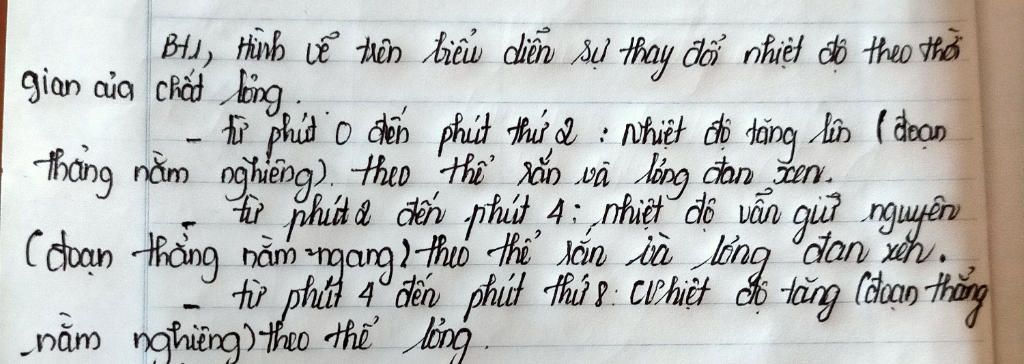 Bt1, Hình vẽ trên biểu diễn sự thay đổi nhiệt độ theo thời
gian của chất lỏng.
- từ phút 0 đến phút thứ 2 : Nhiệt độ tăng lên (đoạn
thẳng nằm nghiêng). theo thể rắn và lỏng đan xen.
- từ phút 2 đến phút 4 : nhiệt độ vẫn giữ nguyên
(đoạn thẳng nằm ngang) theo thể rắn và lỏng đan xen.
- từ phút 4 đến phút thứ 8 : Nhiệt độ tăng (đoạn thẳng
nằm nghiêng) theo thể lỏng.